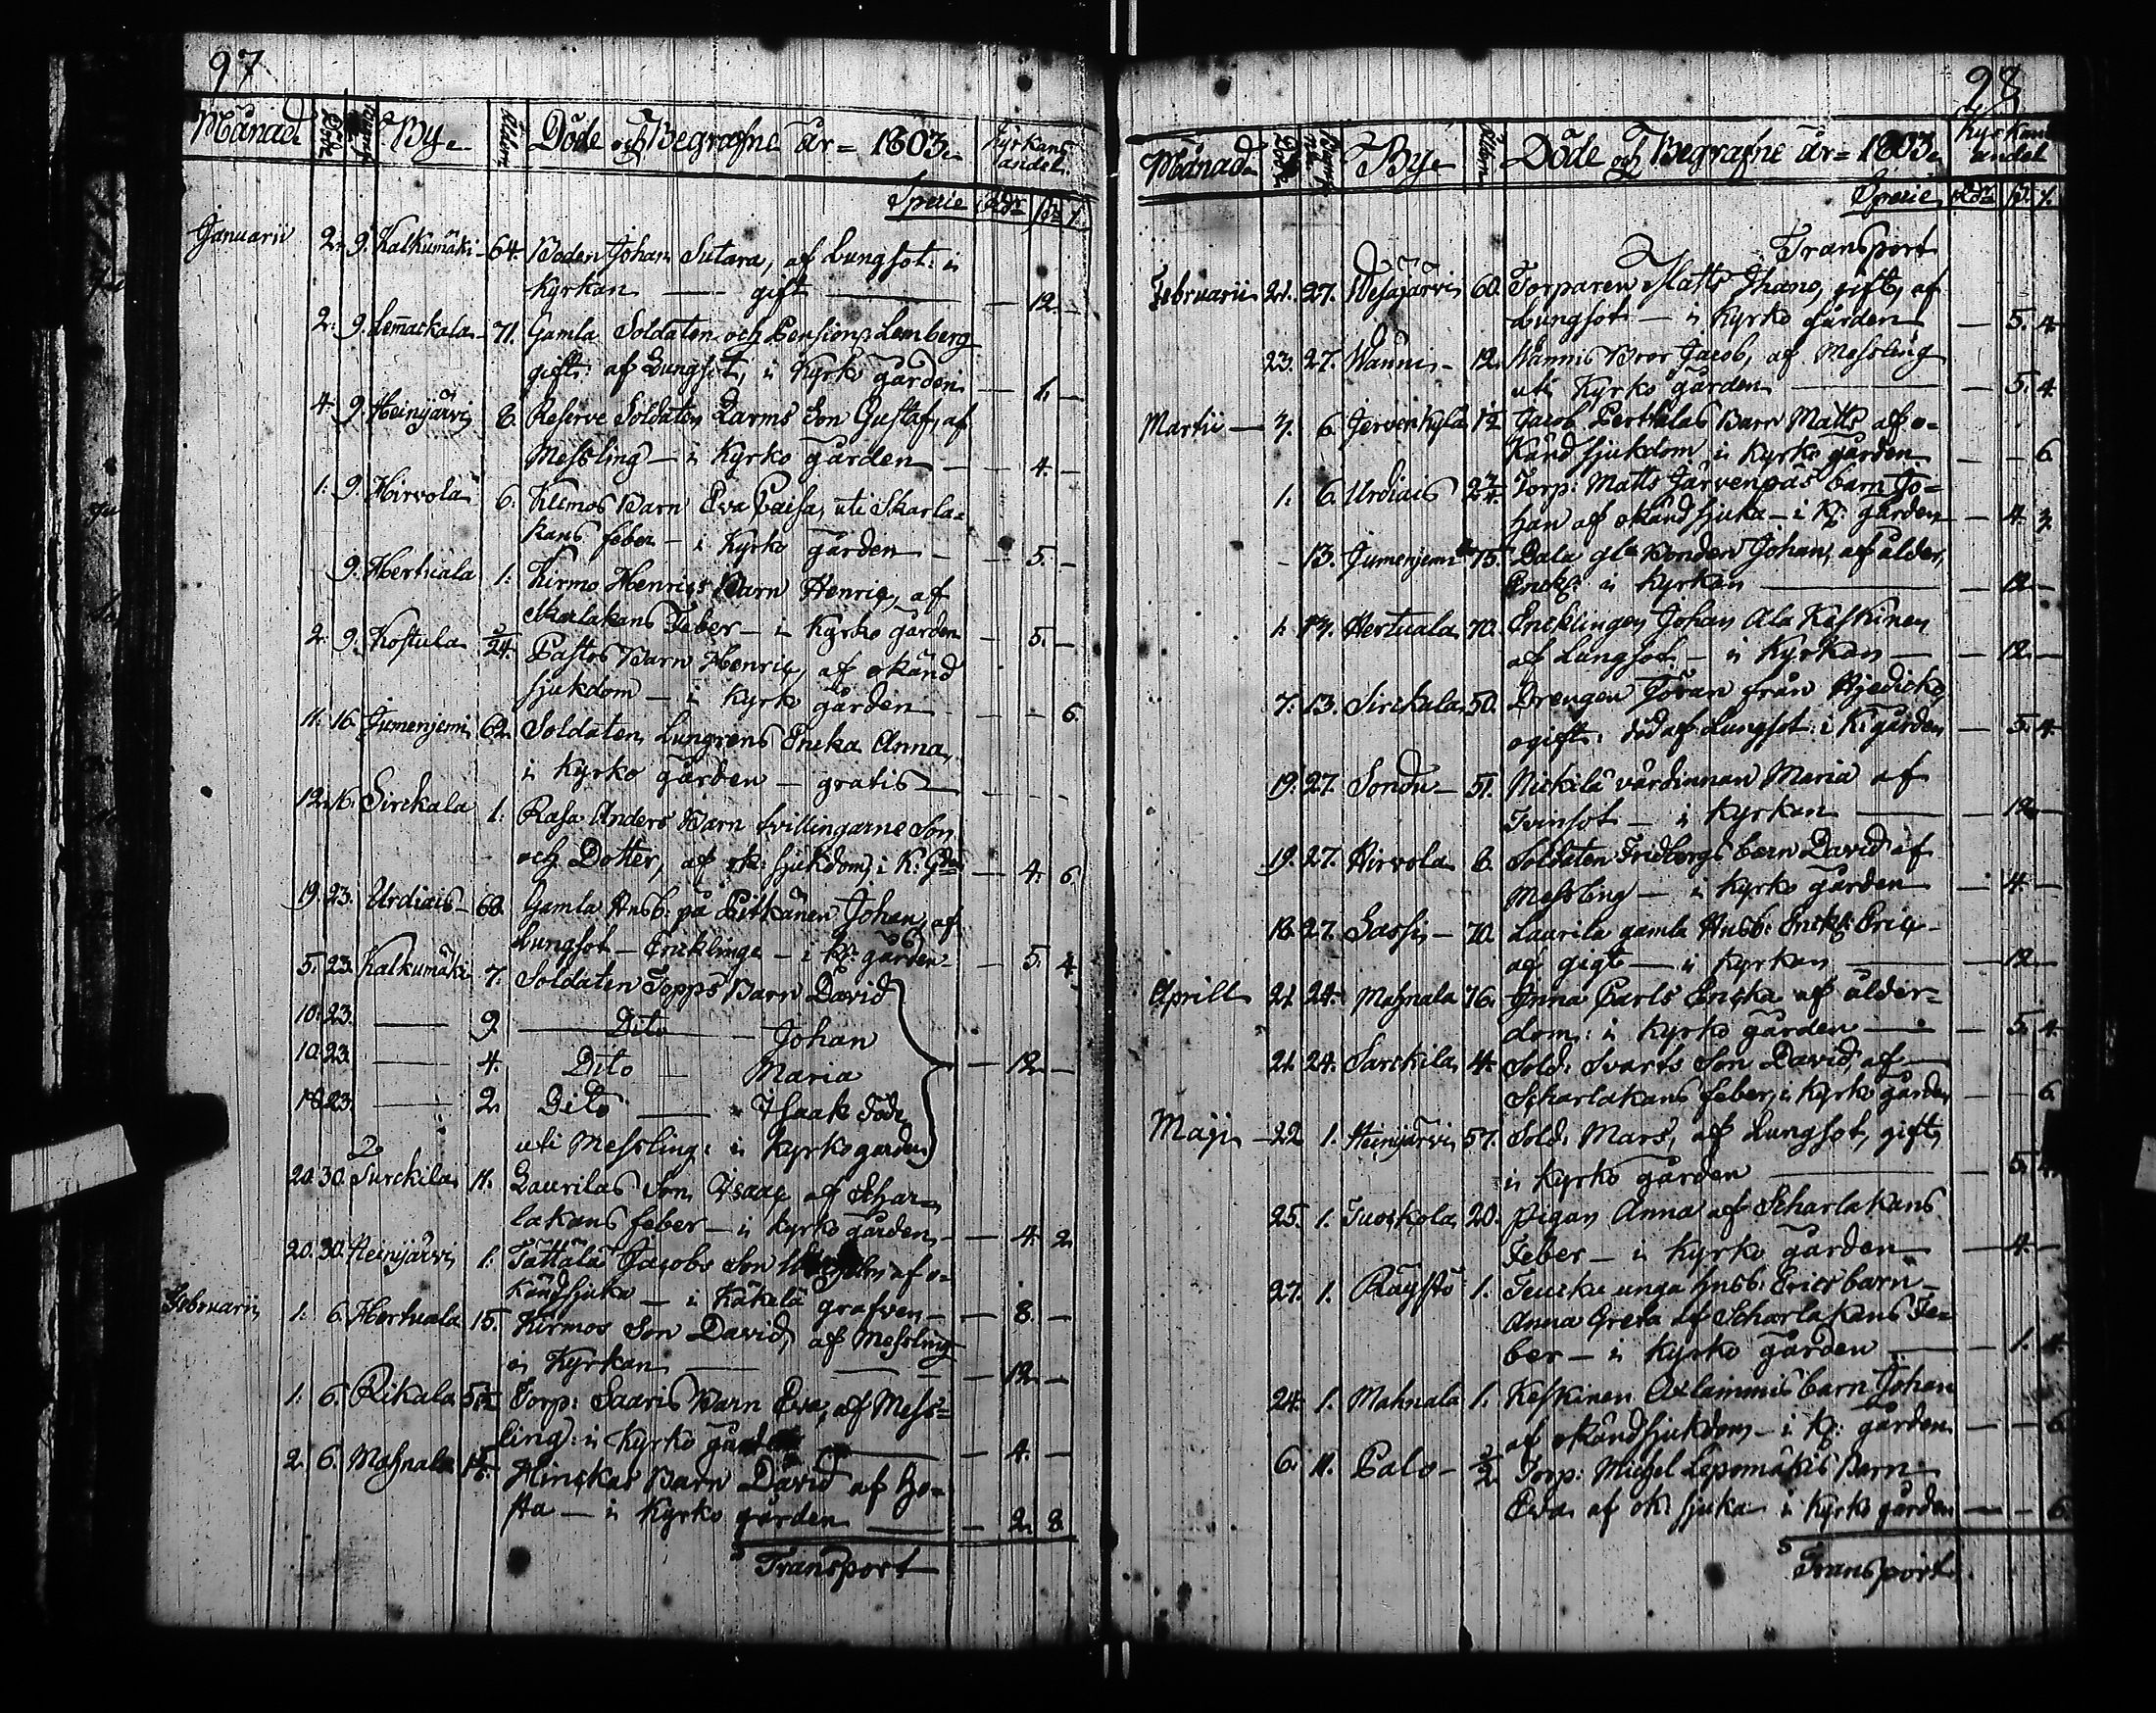 97
Månad Döde Begraf. By Åldern Döde och Begrafne år = 1803. Kyrkans andel.
Specie Rdr ß r.
Januarii 2. 9. Kalkumäki 64. Boden Johan Sutara, af Lungsot: i
Kyrkan — gift — 12. —
2. 9. Lemackala 71. Gamla Soldaten och Pensions Lemberg
gift: af Lungsot, i Kyrko gården — 1. —
4. 9. Heinijärvi 6. Reserve Soldaten Larms Son Gustaf, af
Messling — i Kyrko gården — 4. —
1. 9. Hirvola 6. Klemos Barn Eva Caisa, uti Skarla-
kans feber — i Kyrko gården — 5. —
9. Hertuala 1. Kirmo Henrics Barn Henric, af
Skarlakans Feber — i Kyrko gården — 5. —
2. 9. Kostula 2/24. Pastos Barn Henric, af okänd
sjukdom — i Kyrko gården — 6.
11. 16. Jumenjemi 62. Soldaten Lungrens Encka Anna,
i Kyrko gården — gratis —
12. 16. Sirckala 1. Rasa Anders Barn tvillingarne Son
och Dotter, af ok: sjukdom, i K: Gden — 4. 6.
19. 23. Urdiais 68. Gamla Husb: på Pitkänen Johan, af
Lungsot — Encklinge — i K: gården — 5. 4.
5. 23. Kalkumäki 7. Soldaten Topps Barn David
10. 23. — 9. Dito — Johan
10. 23. — 4. Dito — Maria — 12. —
18. 23. — 2. Dito — Isaak döde
uti Messling: i Kyrkogården
20. 30. Surckila 11. Laurilas Son Isaac af Schar-
lakans feber — i kyrko gården — 4. 2.
20. 30. Heinijärvi 1. Tättälä Jacobs Son af o-
känd sjuka — i Käkelä grafven — 8. —
Februarii 1. 6. Hertuala 15. Kirmos Son David, af Messling
i Kyrkan — 12. —
1. 6. Rikala Torp: Saaris Barn Eva, af Mess-
ling: i Kyrko gården — 4. —
2. 6. Mahnala Hinckas Barn David af ho-
sta — i Kyrko gården — 2. 8.
Transport
98
Månad Döde Begraf. By Åldern Döde och Begrafne år = 1803. Kyrkans andel
Specie Rdr ß. r.
Transport
Februarii 21. 27. Wesajärvi 60. Torparen Matts Ihano, gift, af
Lungsot — i Kyrko gården — 5. 4.
23. 27. Wänni 12. Wännis Bror Jacob, af Messling
uti Kyrko gården — 5. 4.
Martii 3. 6. Jervenkylä Jacob Perttulas Barn Matts af o-
känd sjukdom i Kyrko gården — 6
1. 6. Urdiais Torp: Matts Järvenpäs barn Jo-
han af okänd sjuka — i K: gården — 4. 3.
13. Jumenjemi 75. Lala gla Bonden Johan, af ålder,
Enckl: i Kyrkan — 12 —
1. 13. Hertuala 70. Encklingen Johan Ala Keskinen
af Lungsot — i Kyrkan — 12. —
7. 13. Sirckala 50. Drengen Göran från
ogift: död af Lungsot: i K: gården — 5. 4.
19. 27. Sondu 51. Nickilä värdinnan Maria af
Tvinsot — i Kyrkan — 12. —
19. 27. Hirvola 8. Soldaten Fridbergs barn David af
Messling — i Kyrko gården — 4. —
18. 27. Sassi 70. Laurila gamla Husb: Enckl: Eric
af gigt — i Kyrkan — 12 —
Aprill 21. 24. Mahnala 76. Anna Carls Encka af ålder-
dom: i Kyrko gården — 5. 4.
21. 24. Sarckila 4. Sold: Svarts Son David, af
Scharlakans feber, i Kyrko gården — 6.
Maji 22. 1. Heinijärvi 57. Sold: Mars, af Lungsot, gift,
i Kyrko gården — 5. 4.
25. 1. Tuockola 20. Pigan Anna af Scharlakans
Feber — i Kyrko gården — 4. —
27. 1. Räystö 1. Teucku unga husb: Erics barn
Anna Greta af Scharlakans Fe-
ber — i Kyrko gården — 1. 4.
24. 1. Mahnala 1. Keskinen Axlainmis barn Johan
af okänd sjukdom — i K: gården — 6.
6. 11. Palo Torp: Michel Lepomäkis Barn
Eva af ok: sjuka i Kyrko gården — 6.
Transport